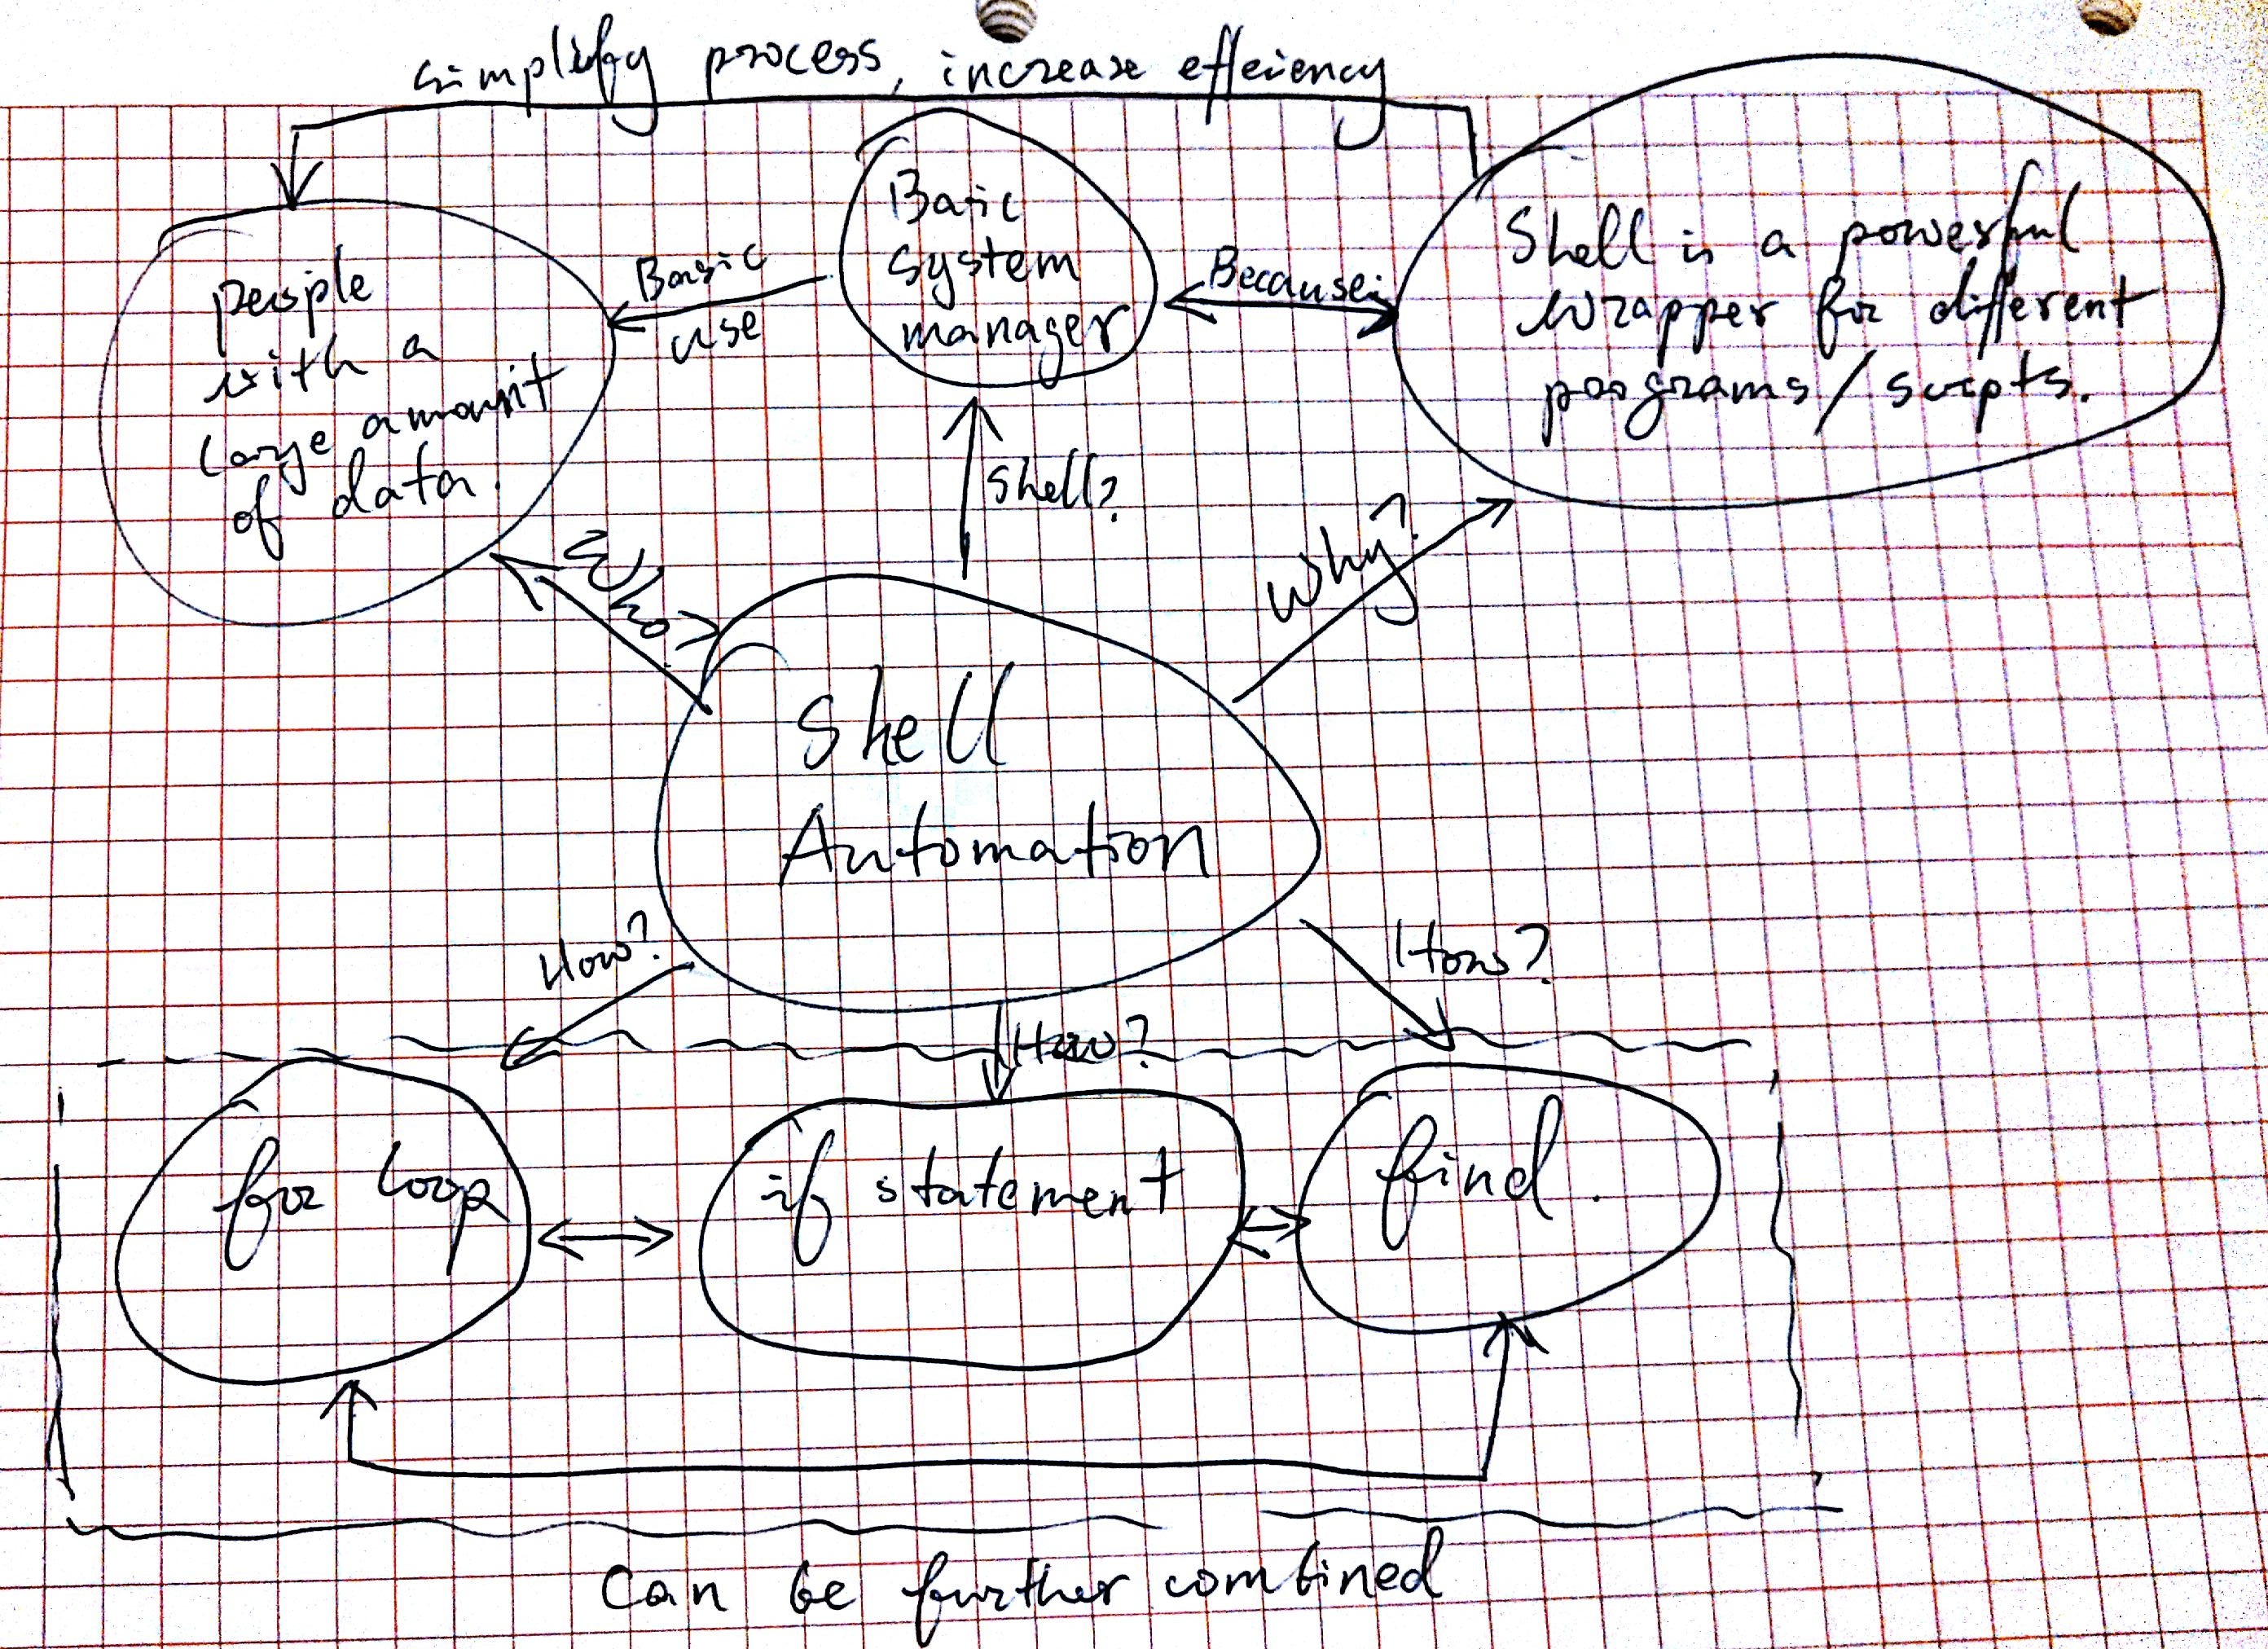 simplify process, increase effeciency
people
with a
large amount
of data.
Basic
use
Basic
system
manager
Because:
Shell is a powerful
wrapper for different
programs/scripts.
Who?
Shell?
Why?
Shell
Automation
How?
How?
How?
for loop
if statement
find.
Can be further combined